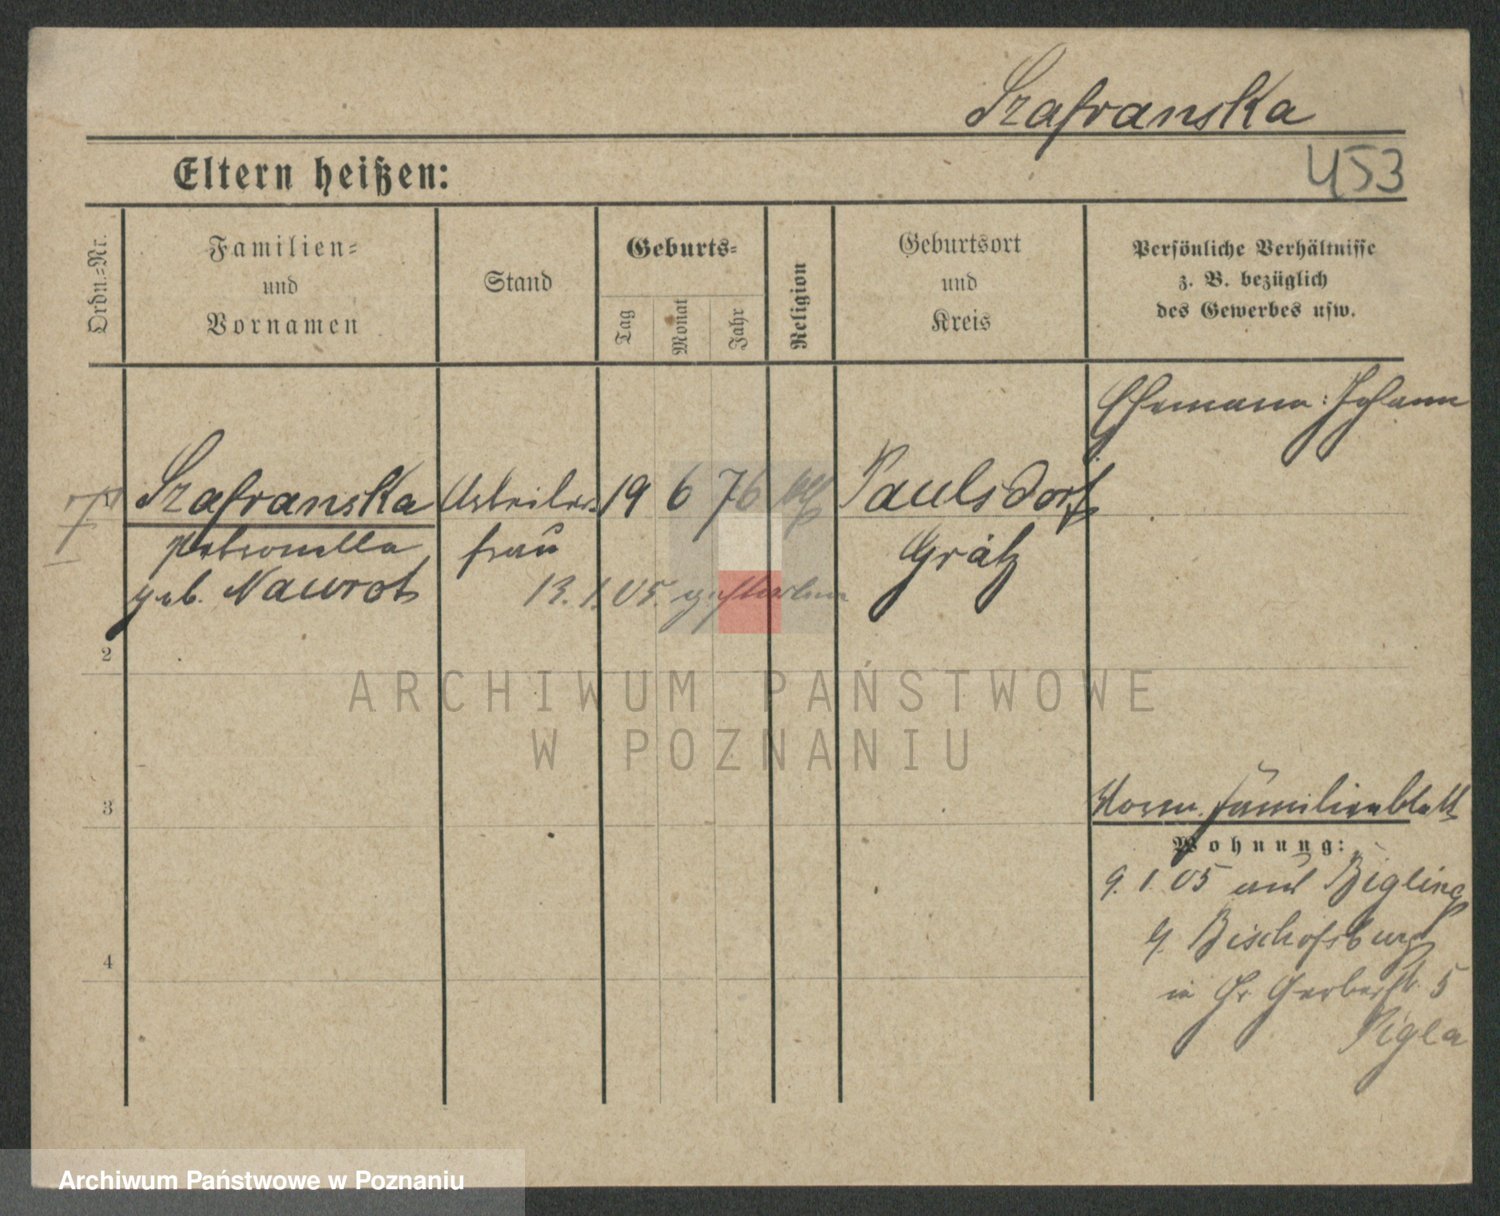 Szafranska
453
Eltern heißen:
Ordn.-Nr.
Familien-
und
Vornamen
Stand
Geburts-
Tag
Monat
Jahr
Religion
Geburtsort
und
Kreis
Persönliche Verhältnisse
z. B. bezüglich
des Gewerbes usw.
Ehemann: Johann
Szafranska Arbeiter- 19 6 76 Paulsdorf
Petronella frau Grätz
geb. Nawrot 13. 1. 05. gestorben
2
ARCHIWUM PAŃSTWOWE
W POZNANIU
3
Familienblatt
Wohnung:
9. 1. 05 aus
Bischofsburg
in Gr Gerberstr. 5
4
Archiwum Państwowe w Poznaniu